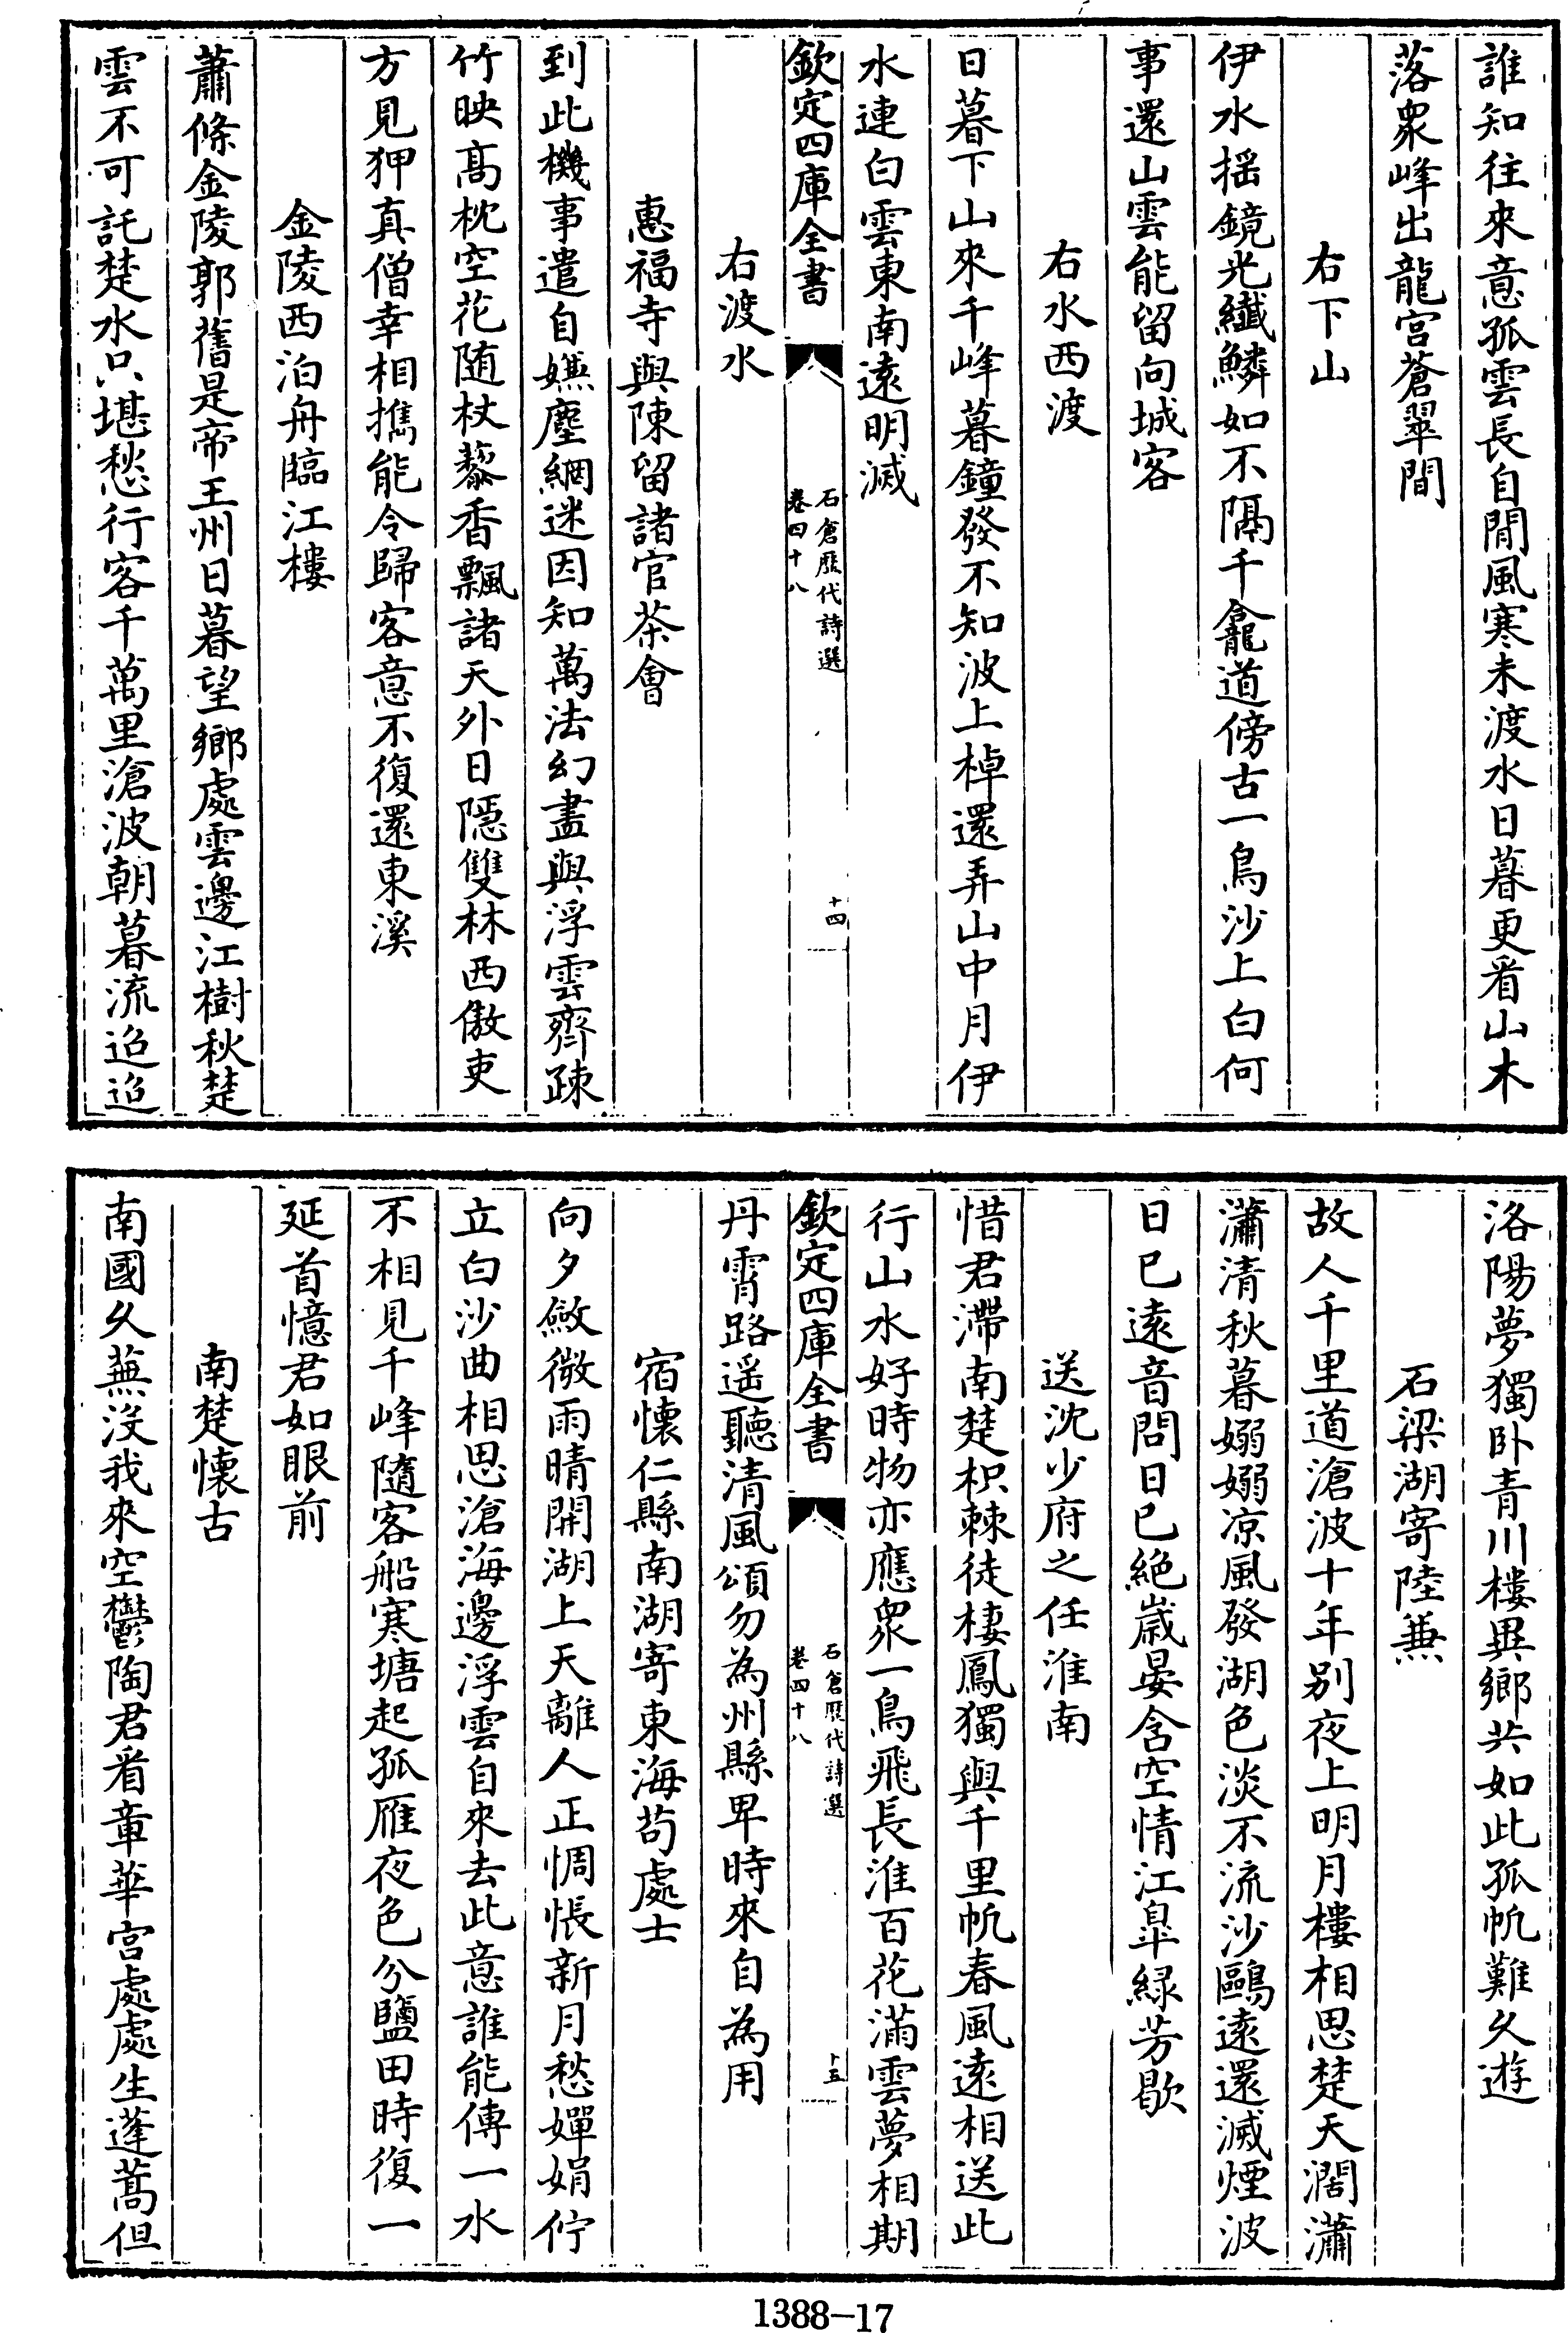 誰知往來意孤雲長自閒風寒未渡水日暮更看山木
落衆峰出龍宫蒼翠間
右下山
伊水揺鏡光纎鱗如不隔千龕道傍古一鳥沙上白何
事還山雲能留向城客
右水西渡
日暮下山來千峰暮鐘發不知波上棹還弄山中月伊
水連白雲東南遠明滅
欽定四庫全書
石倉歴代詩選
卷四十八
十四
右渡水
惠福寺與陳留諸官茶會
到此機事遣自嫌塵網迷因知萬法幻盡與浮雲齊疎
竹映髙枕空花随杖藜香飄諸天外日隱雙林西傲吏
方見狎真僧幸相擕能令歸客意不復還東溪
金陵西泊舟臨江樓
蕭條金陵郭舊是帝王州日暮望鄉處雲邊江樹秋楚
雲不可託楚水只堪愁行客千萬里滄波朝暮流迢迢
洛陽夢獨卧青川樓異鄉共如此孤帆難久遊
石梁湖寄陸兼
故人千里道滄波十年别夜上明月樓相思楚天濶瀟
瀟清秋暮嫋嫋凉風發湖色淡不流沙鷗遠還滅煙波
日已遠音問日已絶歲晏含空情江臯緑芳歇
送沈少府之任淮南
惜君滯南楚枳棘徒棲鳳獨與千里帆春風遠相送此
行山水好時物亦應衆一鳥飛長淮百花滿雲夢相期
欽定四庫全書
石倉歴代詩選
卷四十八
十五
丹霄路遥聽清風頌勿為州縣卑時來自為用
宿懷仁縣南湖寄東海苟處士
向夕斂微雨晴開湖上天離人正惆悵新月愁嬋娟佇
立白沙曲相思滄海邊浮雲自來去此意誰能傳一水
不相見千峰隨客船寒塘起孤雁夜色分鹽田時復一
延首憶君如眼前
南楚懷古
南國久蕪没我來空鬱陶君看章華宫處處生蓬蒿但
1388-17